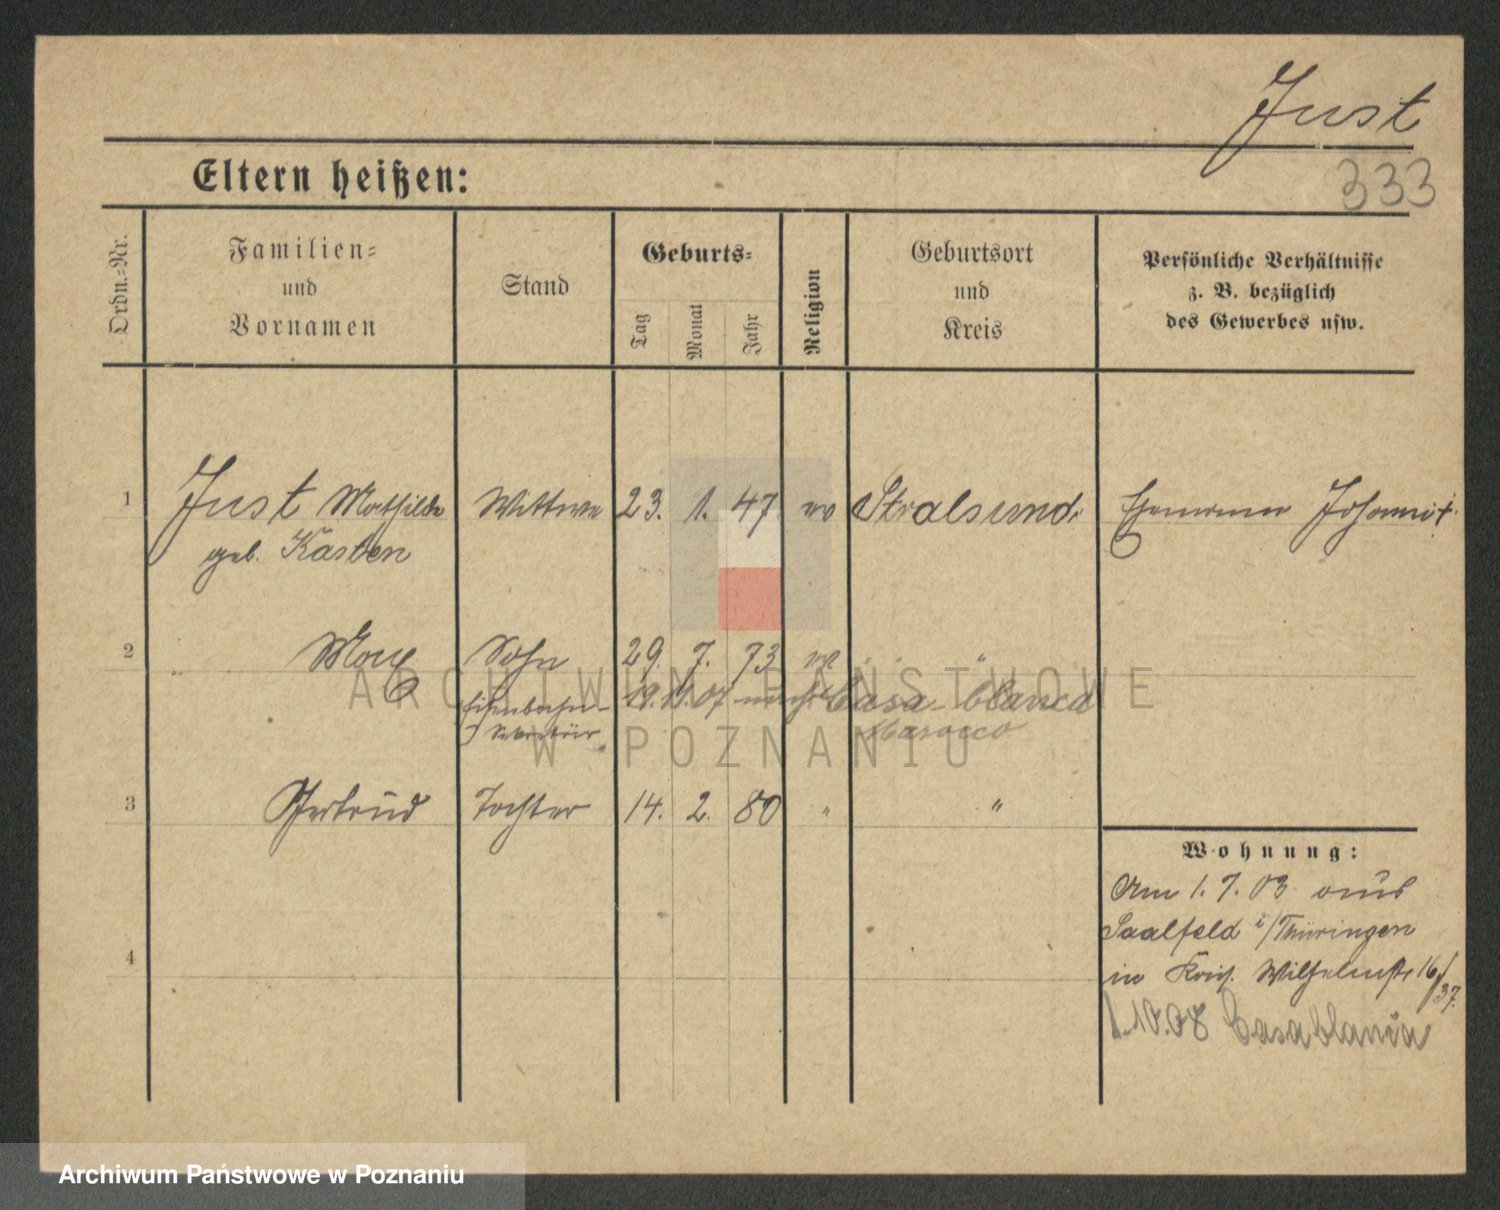 Just
333
Eltern heißen:
Ordn.-Nr.
Familien-
und
Vornamen
Stand
Geburts-
Tag
Monat
Jahr
Religion
Geburtsort
und
Kreis
Persönliche Verhältnisse
z. B. bezüglich
des Gewerbes usw.
1 Just Mathilde Wittwe 23. 1. 47 ev Stralsund. Ehemann Johann †.
geb. Kasten
2 Max Sohn 29. 7. 73 ev "
Eisenbahn- 19. 11. 07 nach Casa-blanca
Sekretär Marocco
3 Gertrud Tochter 14. 2. 80 " "
Wohnung:
Am 1. 7. 03 aus
Saalfeld i/Thüringen
in Wilhelmstr 16/37.
1.10.08 Casablanca
4
ARCHIWUM PAŃSTWOWE
W POZNANIU
Archiwum Państwowe w Poznaniu